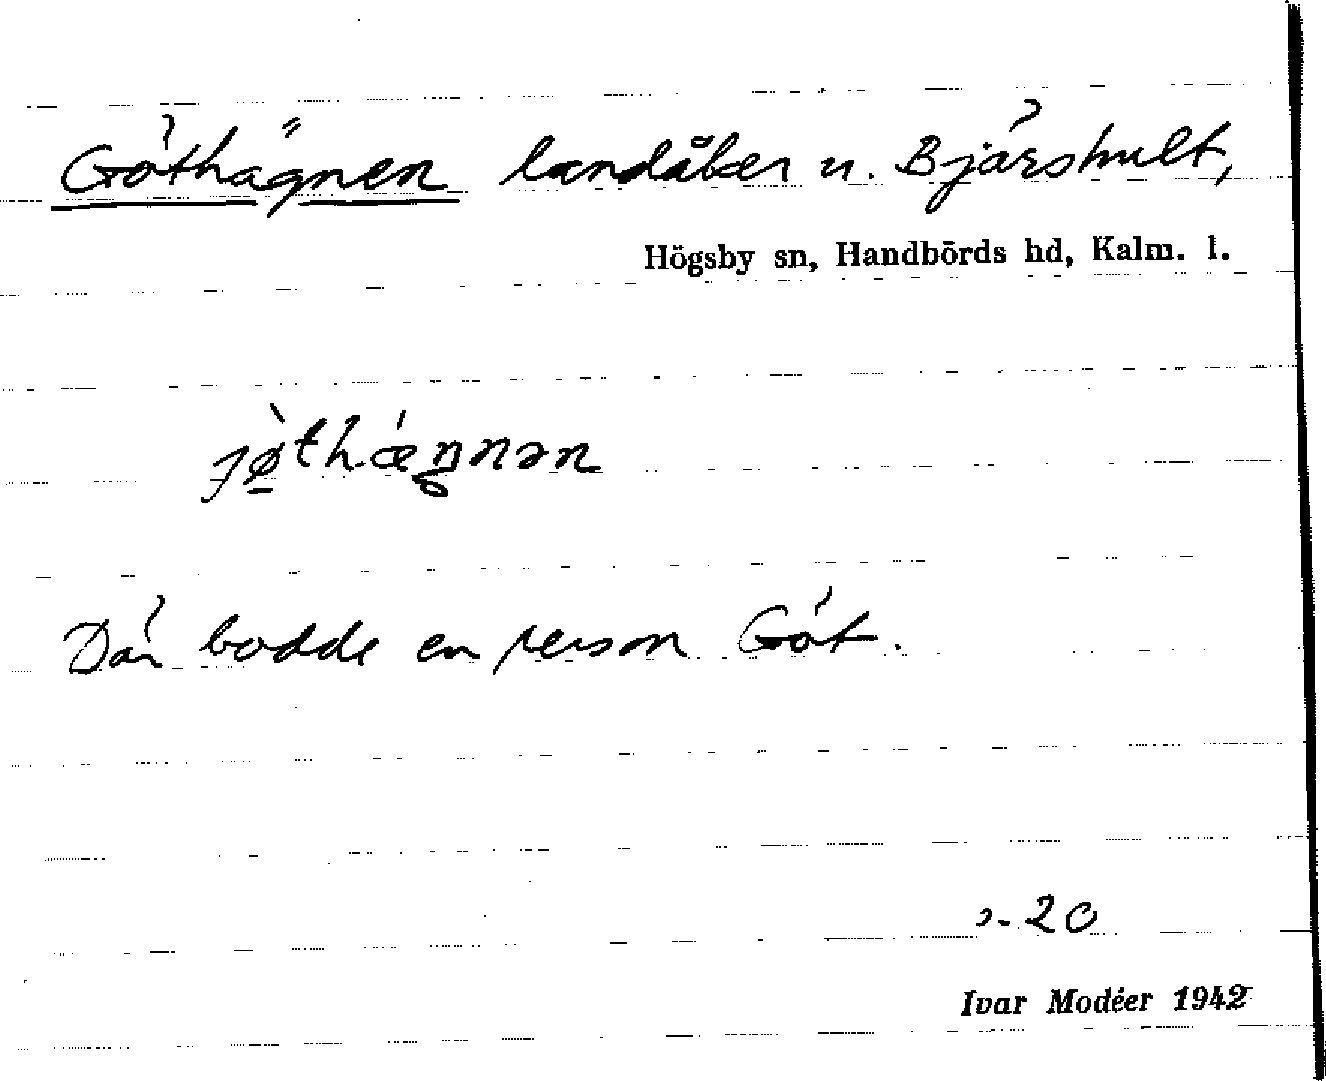 Göthägnen landåker u. Bjärshult,
Högsby sn, Handbörds hd, Kalm. l.
jø̀thǽŋnən
Där bodde en person Göt.
20
Ivar Modéer 1942